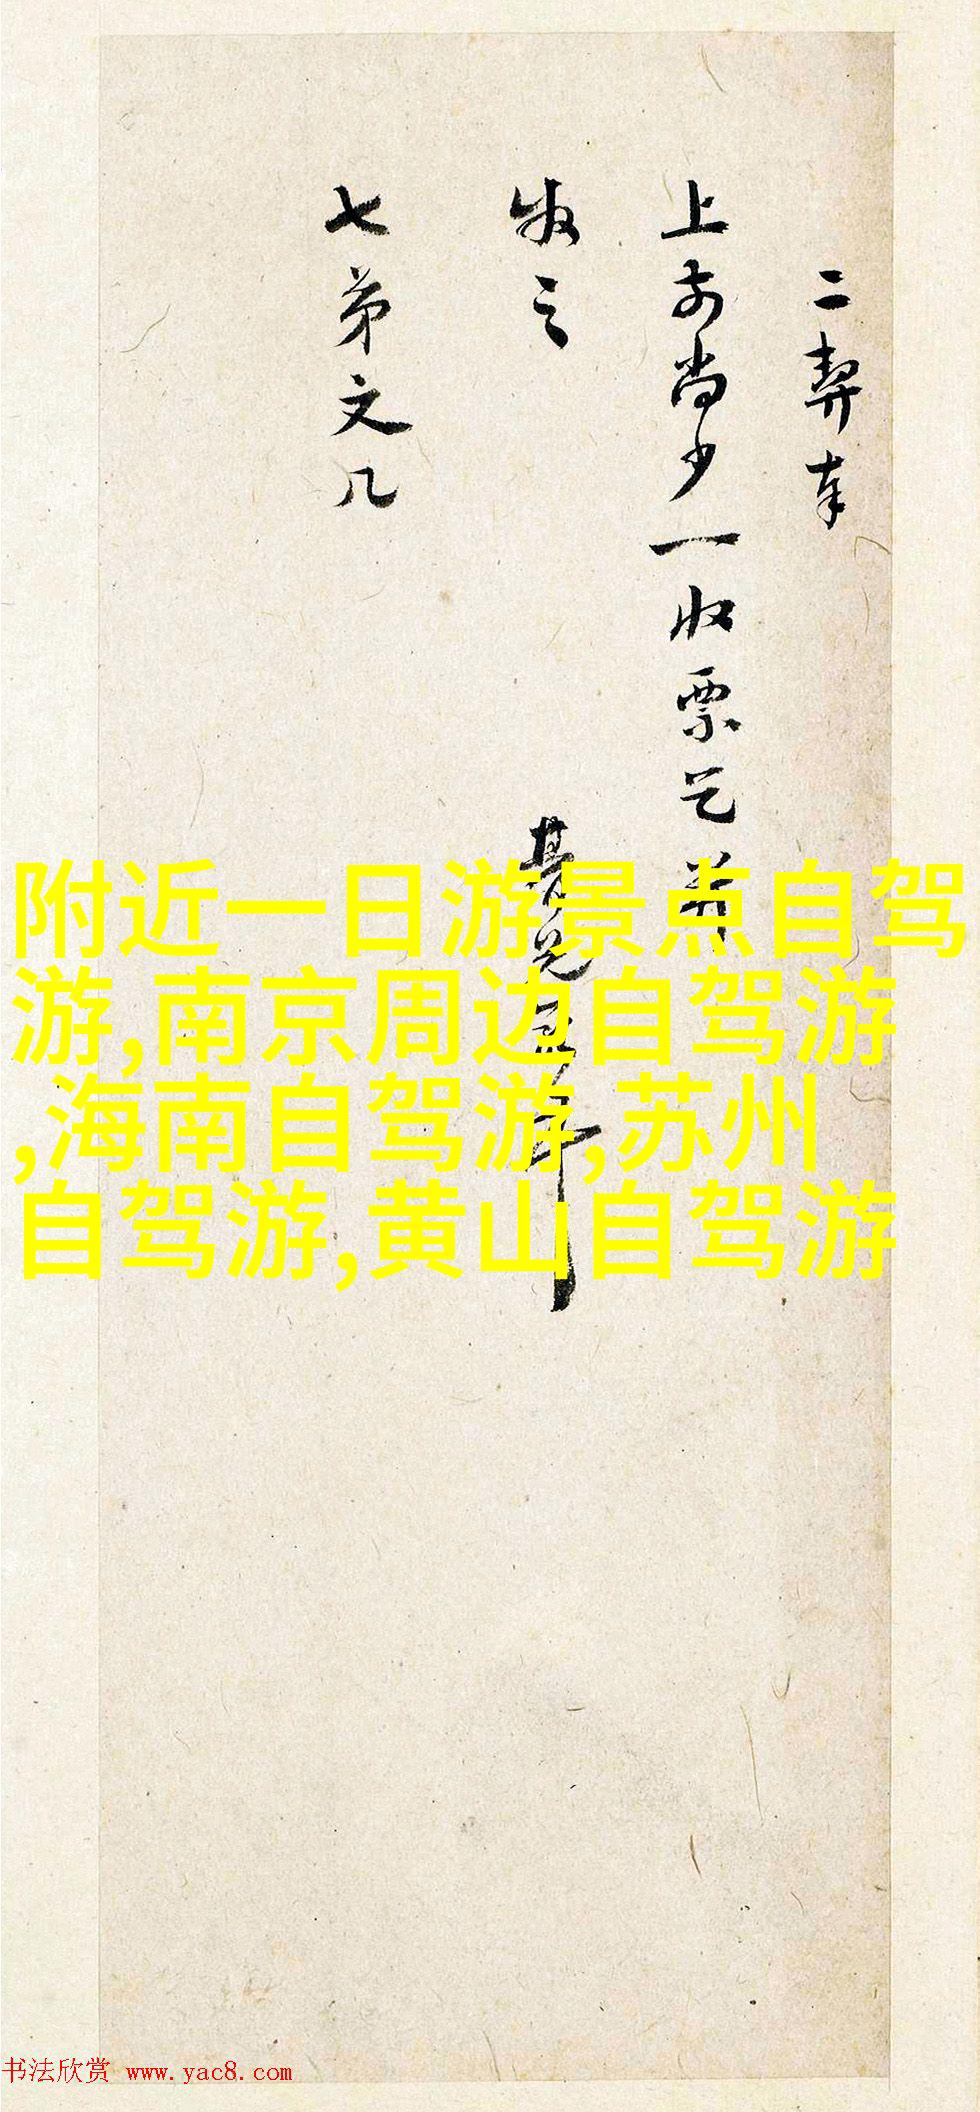 二契奉
上前尚少一收票乞并
收之
期兄
七弟文几
附近一日游景点自驾
游,南京周边自驾游
,海南自驾游,苏州
自驾游,黄山自驾游
书法欣赏 www.yac8.com